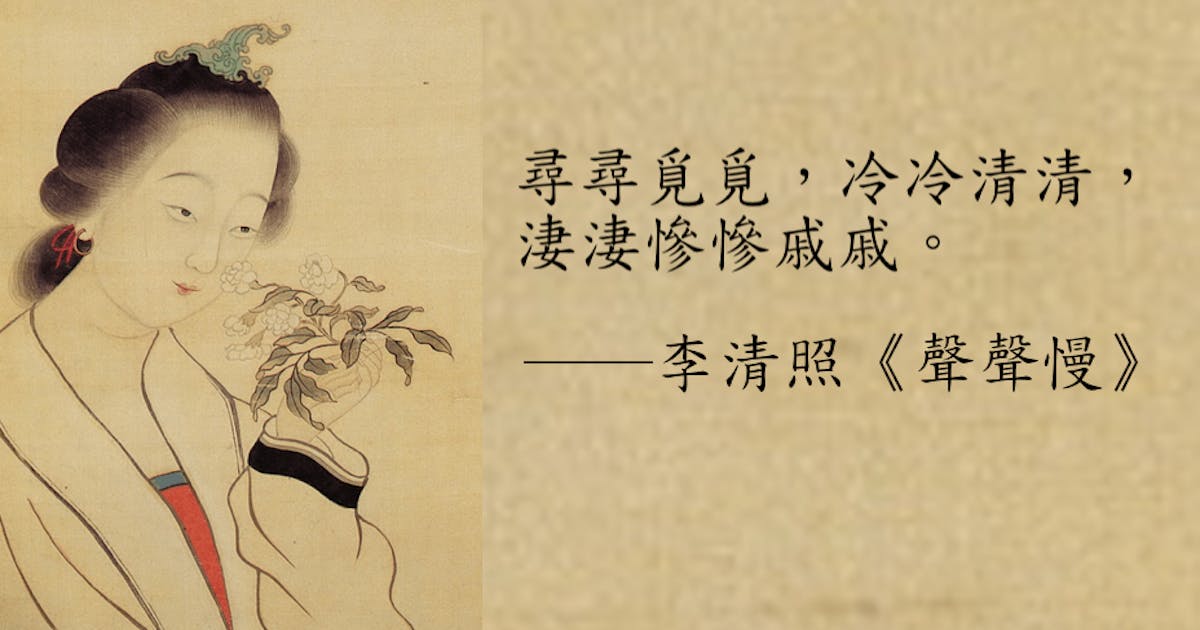 尋尋覓覓，冷冷清清，
淒淒慘慘戚戚。
——李清照《聲聲慢》